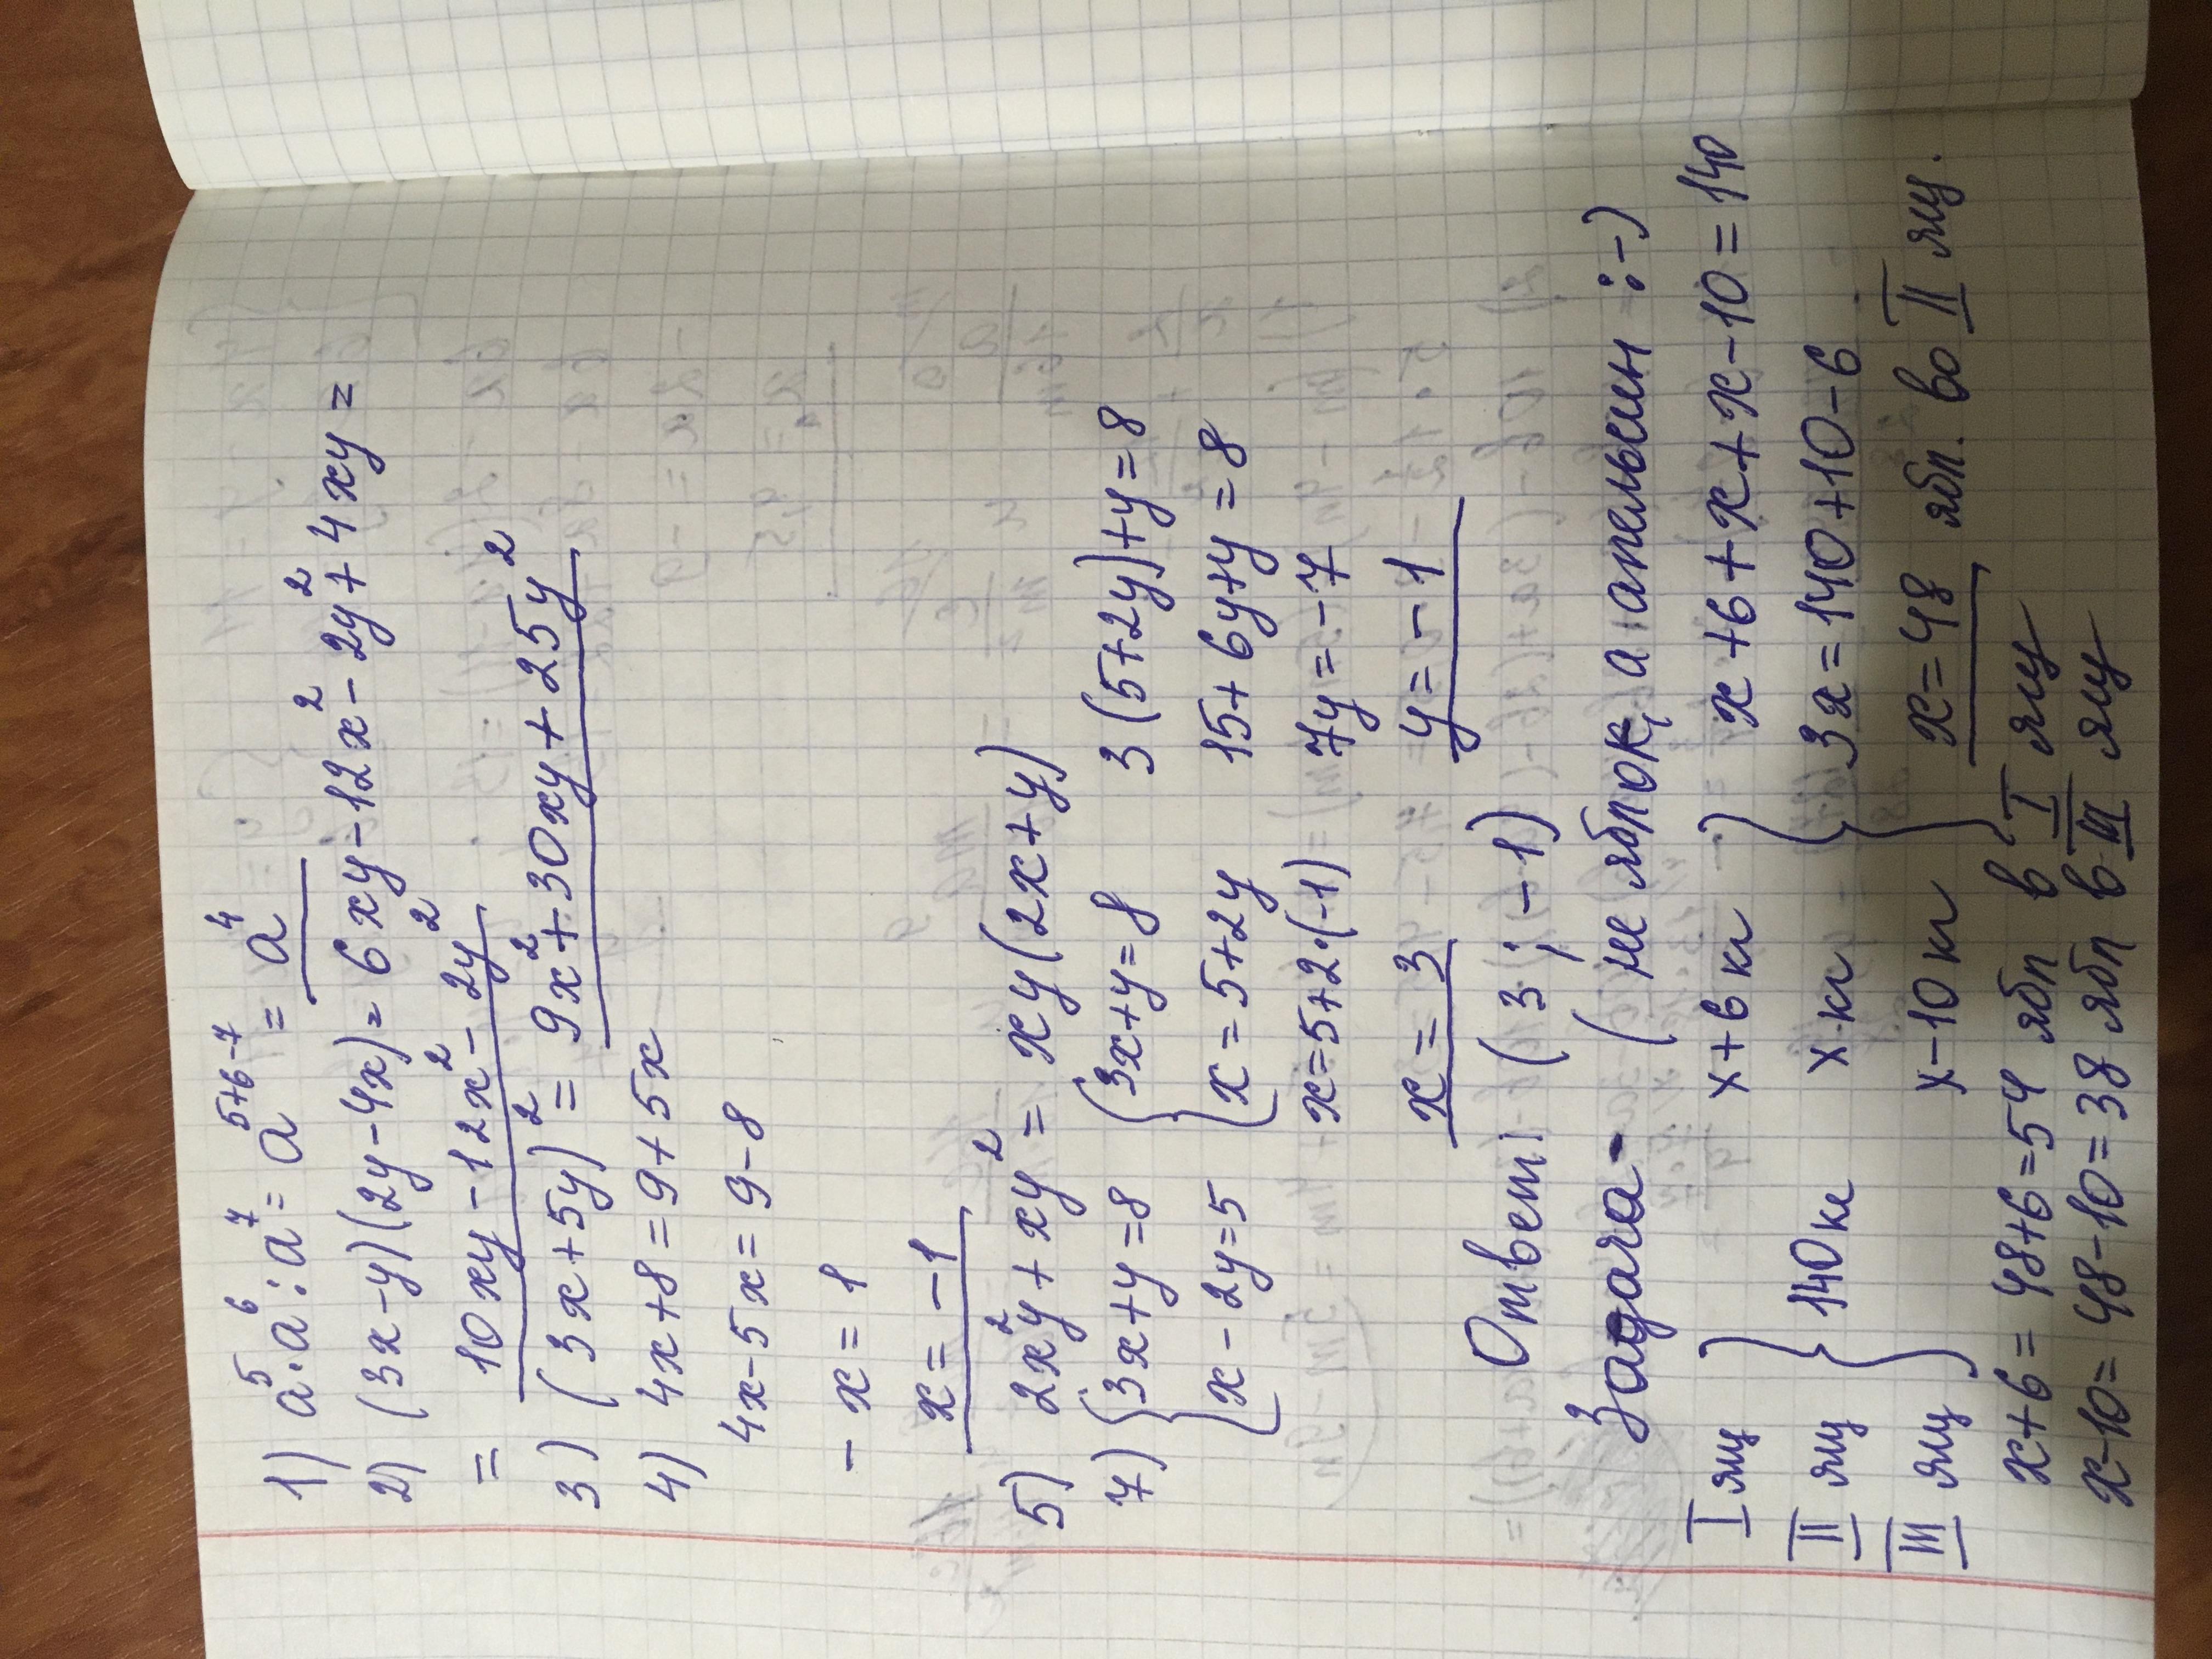 1) a⁵·a⁶:a⁷ = a⁵⁺⁶⁻⁷ = a⁴
2) (3x-y)(2y-4x) = 6xy-12x²-2y²+4xy =
= 10xy-12x²-2y²
3) (3x+5y)² = 9x²+30xy+25y²
4) 4x+8=9+5x
4x-5x=9-8
-x=1
x=-1
5) 2x²y+xy² = xy(2x+y)
7) {3x+y=8 {3x+y=8 3(5+2y)+y=8
{x-2y=5 {x=5+2y 15+6y+y=8
x=5+2·(-1) 7y=-7
x=3 y=-1
Ответ: (3;-1)
Задача- (не яблок, а апельсин :-)
I ящ } x+6 кг } x+6+x+x-10=140
II ящ } 140кг x кг } 3x=140+10-6
III ящ } x-10 кг } x=48 ябл. во II ящ.
x+6=48+6=54 ябл в I ящ
x-10=48-10=38 ябл в III ящ